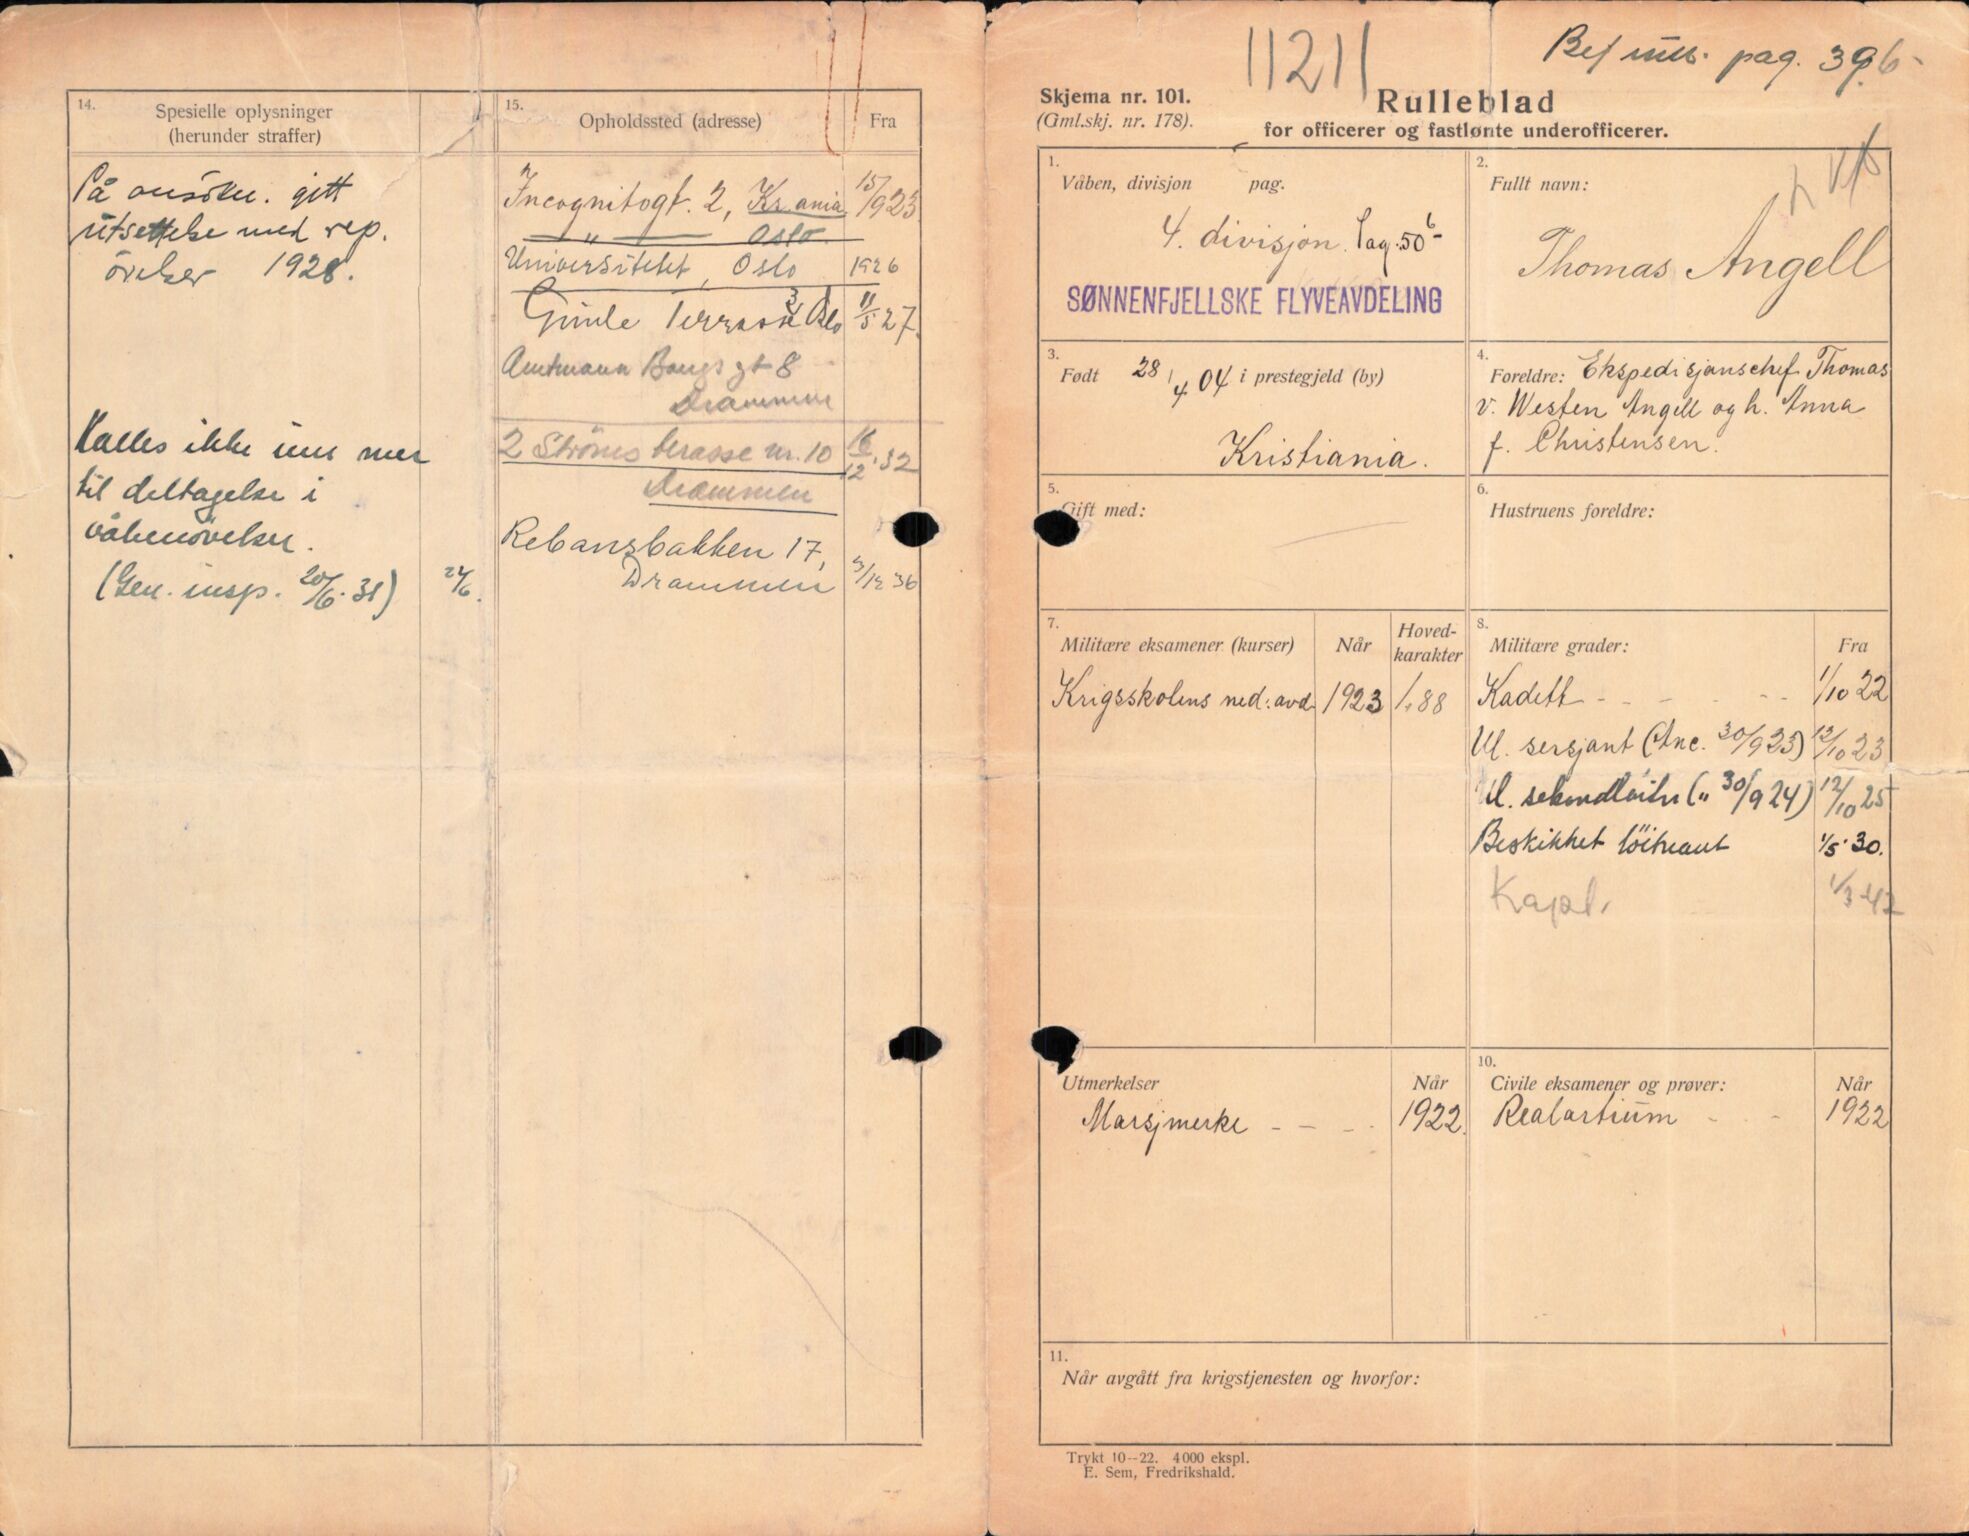 14.
Spesielle oplysninger
(herunder straffer)
På ansökn. gitt
utsettelse med rep.
övelser 1928.
Kalles ikke inn mer
til deltagelse i
våbenövelser.
(Gen. insp. 20/6. 38) 24/6.
15.
Opholdssted (adresse) Fra
Incognitogt. 2, Kr.ania 15/9 23
— „ — Oslo.
Universitetet, Oslo 1926
Gimle Terrasse 3, Oslo 11/5 27.
Amtmann Bangs gt 8
Drammen
2 Ströms terasse nr. 10 16/12. 32
Drammen
Rebansbakken 17, 3/12 36
Drammen
11211
Bef rull. pag. 396-
Skjema nr. 101.
(Gml.skj. nr. 178).
Rulleblad
for officerer og fastlønte underofficerer.
1.
Våben, divisjon pag.
4. divisjon. Pag. 506-
SØNNENFJELLSKE FLYVEAVDELING
2.
Fullt navn:
Thomas Angell
3.
Født 28/4 04 i prestegjeld (by)
Kristiania.
4.
Foreldre: Ekspedisjonschef Thomas
v. Westen Angell og h. Anna
f. Christensen.
5.
Gift med:
6.
Hustruens foreldre:
7.
Militære eksamener (kurser) Når Hoved-
karakter
Krigsskolens ned. avd. 1923 1,88
8.
Militære grader: Fra
Kadett - - - - - 1/10 22
Ul. sersjant (Anc. 30/9 23) 12/10 23
Ul. sekondlöitn (" 30/9 24) 12/10 25
Beskikket löitnant 1/5 30.
Kapt. 1/3 42
Utmerkelser Når
Marsjmerke - - - - 1922.
10.
Civile eksamener og prøver: Når
Realartium - - 1922
11.
Når avgått fra krigstjenesten og hvorfor:
Trykt 10--22. 4000 ekspl.
E. Sem, Fredrikshald.